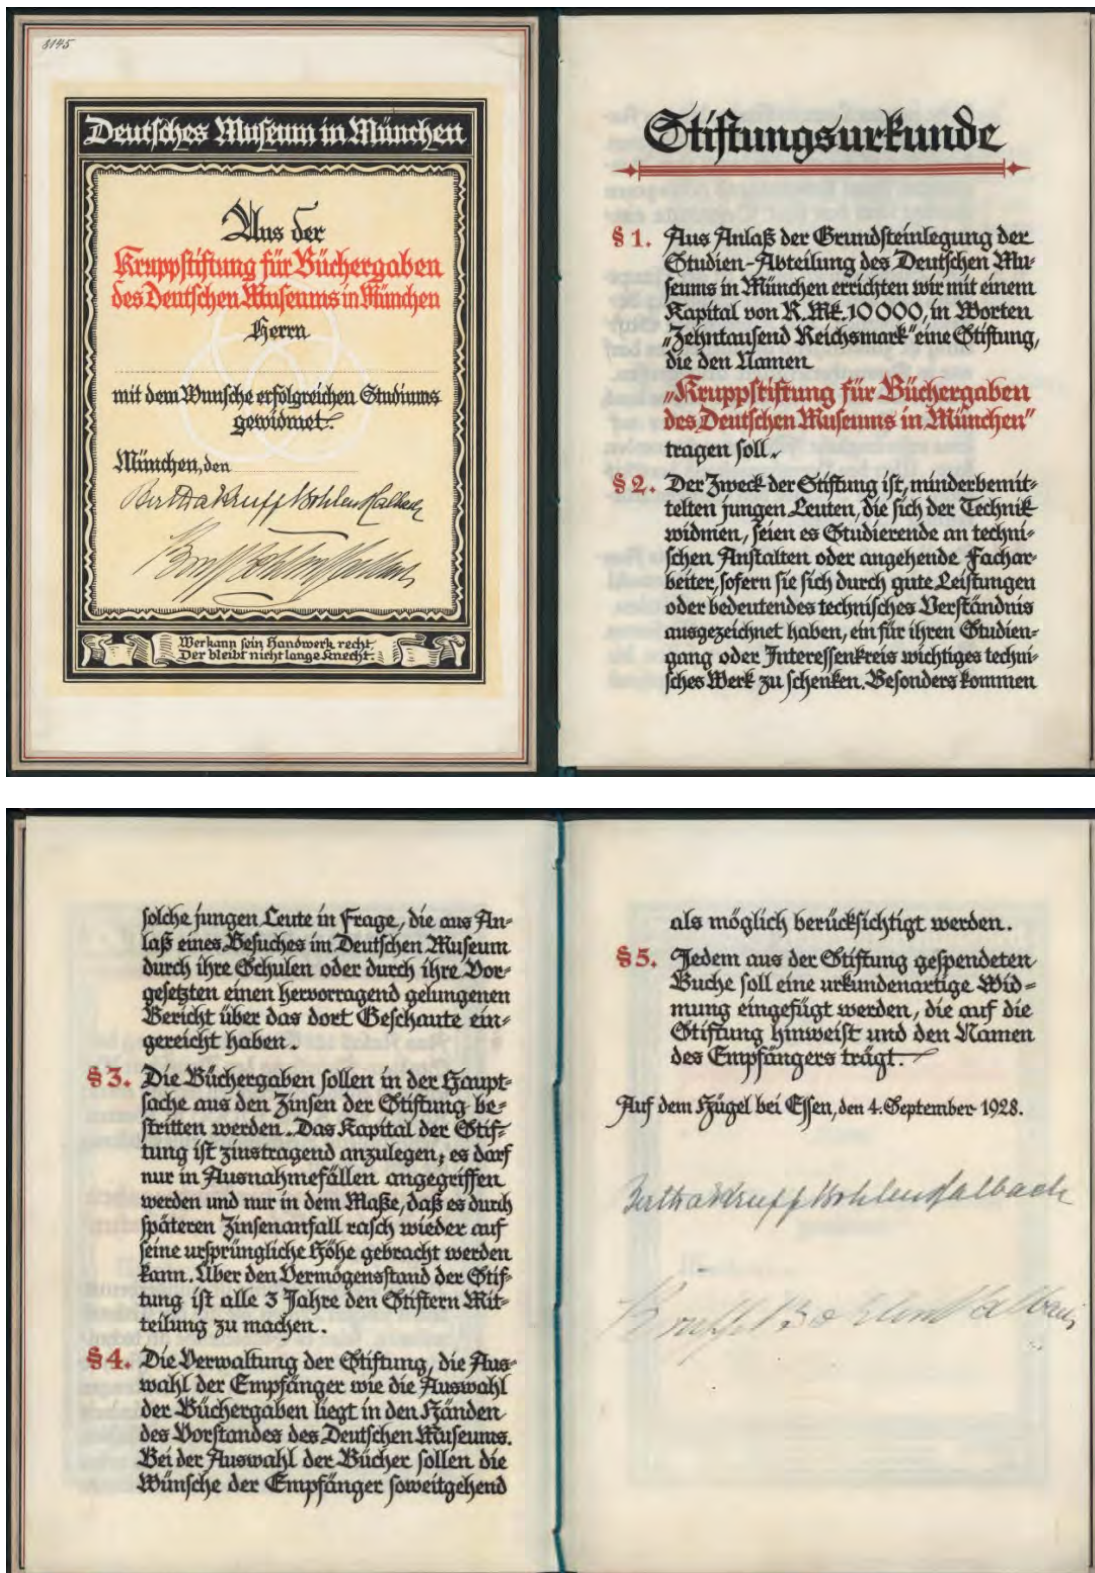 8145
Deutsches Museum in München
Aus der
Kruppstiftung für Büchergaben
des Deutschen Museums in München
Herrn
mit dem Wunsche erfolgreichen Studiums
gewidmet.
München, den
Bertha Krupp Bohlen Halbach
Krupp Bohlen Halbach
Wer kann sein Handwerk recht,
Der bleibt nicht lange Knecht.
Stiftungsurkunde
§ 1. Aus Anlaß der Grundsteinlegung der
Studien-Abteilung des Deutschen Mu-
seums in München errichten wir mit einem
Kapital von R.Mk. 10000, in Worten
„Zehntausend Reichsmark" eine Stiftung,
die den Namen
„Kruppstiftung für Büchergaben
des Deutschen Museums in München"
tragen soll.
§ 2. Der Zweck der Stiftung ist, minderbemit-
telten jungen Leuten, die sich der Technik
widmen, seien es Studierende an techni-
schen Anstalten oder angehende Fachar-
beiter, sofern sie sich durch gute Leistungen
oder bedeutendes technisches Verständnis
ausgezeichnet haben, ein für ihren Studien-
gang oder Interessenkreis wichtiges techni-
sches Werk zu schenken. Besonders kommen
solche jungen Leute in Frage, die aus An-
laß eines Besuches im Deutschen Museum
durch ihre Schulen oder durch ihre Vor-
gesetzten einen hervorragend gelungenen
Bericht über das dort Geschaute ein-
gereicht haben.
§ 3. Die Büchergaben sollen in der Haupt-
sache aus den Zinsen der Stiftung be-
stritten werden. Das Kapital der Stif-
tung ist zinstragend anzulegen; es darf
nur in Ausnahmefällen angegriffen
werden und nur in dem Maße, daß es durch
späteren Zinsenanfall rasch wieder auf
seine ursprüngliche Höhe gebracht werden
kann. Über den Vermögensstand der Stif-
tung ist alle 3 Jahre den Stiftern Mit-
teilung zu machen.
§ 4. Die Verwaltung der Stiftung, die Aus-
wahl der Empfänger wie die Auswahl
der Büchergaben liegt in den Händen
des Vorstandes des Deutschen Museums.
Bei der Auswahl der Bücher sollen die
Wünsche der Empfänger soweitgehend
als möglich berücksichtigt werden.
§ 5. Jedem aus der Stiftung gespendeten
Buche soll eine urkundenartige Wid-
mung eingefügt werden, die auf die
Stiftung hinweist und den Namen
des Empfängers trägt.
Auf dem Hügel bei Essen, den 4. September 1928.
Bertha Krupp Bohlen Halbach
Krupp Bohlen Halbach